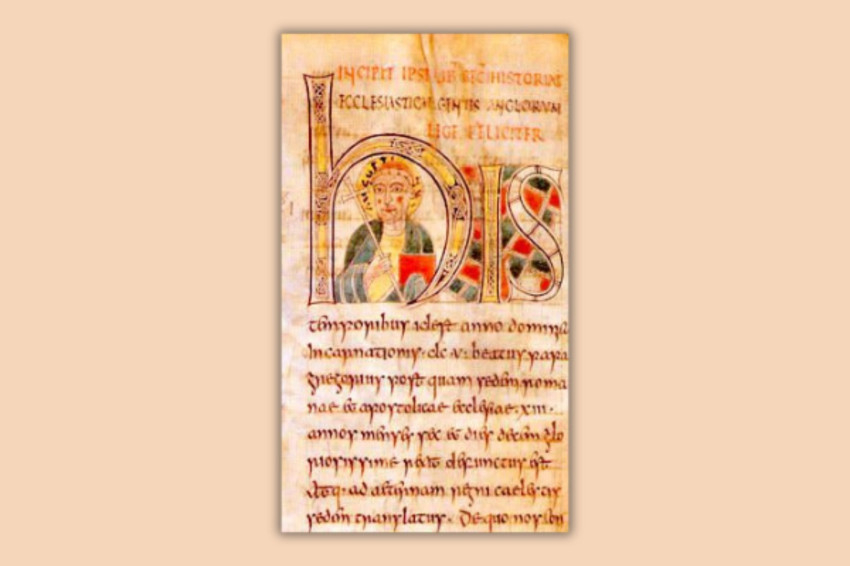 INCIPIT IPSIUS LIB SECUNDUS HISTORIAE
ECCLESIASTICAE GENTIS ANGLORUM
LEGE FELICITER
his
temporibus id est anno dominicae
Incarnationis · dc v · beatus papa
gregorius post quam sedem roma
nae et apostolicae ecclesiae · xiii ·
annos menses sex et dies decem glo
riosissime rexit defunctus est
atq· ad aeternam regni caelestis
sedem translatus · De quo nos